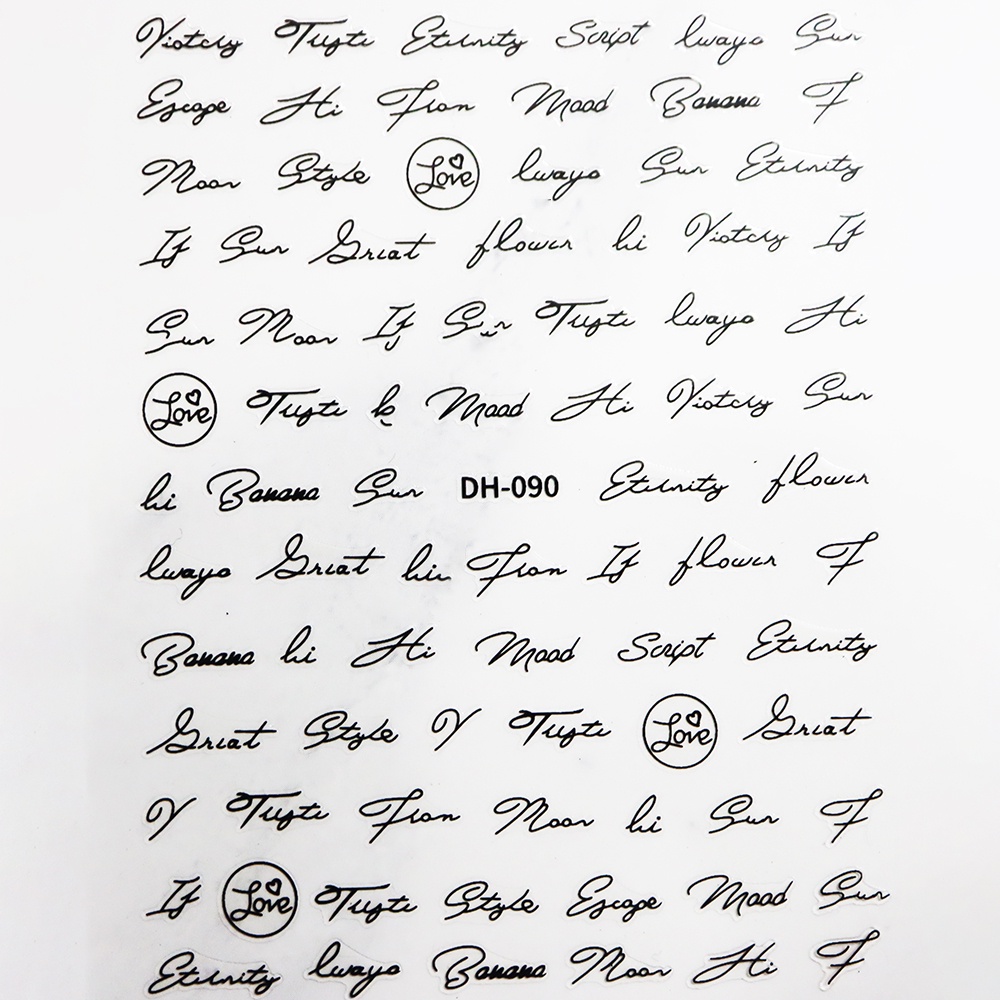 Viotcry Tuste Eternity Script lwayo Sun
Escape Hi Fran Mood Banana F
Moon Style Love lwayo Sun Eternity
If Sun Great flower hi Viotcry If
Sun Moon If Sun Tuste lwayo Hi
Love Tuste Mood Hi Viotcry Sun
hi Banana Sun DH-090 Eternity flower
lwayo Great hi Fran If flower F
Banana hi Hi Mood Script Eternity
Great Style Y Tuste Love Great
Y Tuste Fran Moon hi Sun F
If Love Tuste Style Escape Mood Sun
Eternity lwayo Banana Moon Hi F